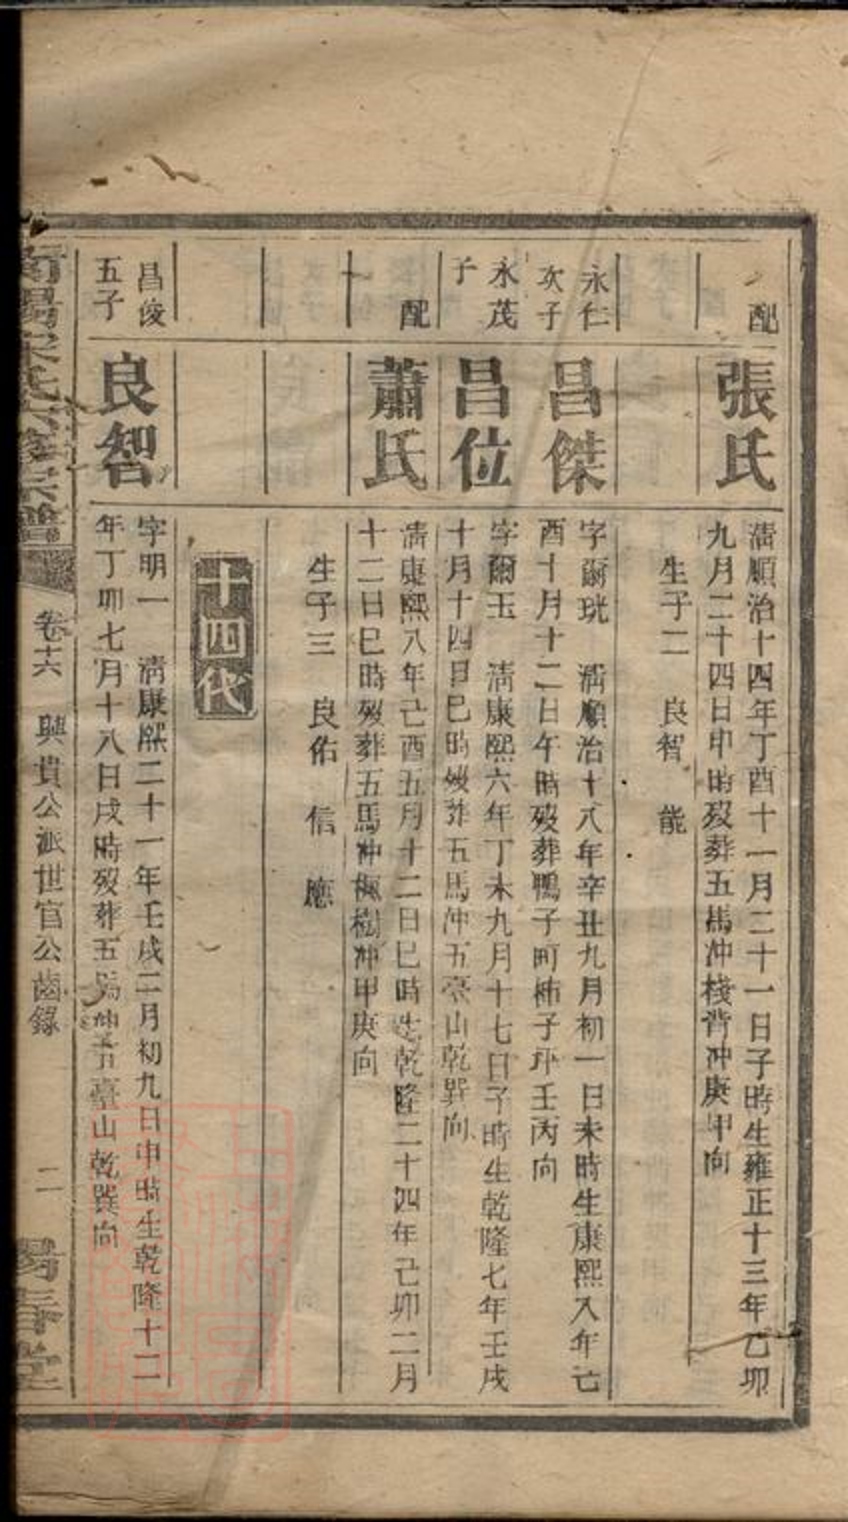 配
張氏
清順治十四年丁酉十一月二十一日子時生雍正十三年乙卯
九月二十四日申時歿葬五馬冲棧背冲庚甲向
生子二 良智 能
永仁
次子
昌傑
字爾珖 清順治十八年辛丑九月初一日未時生康熙八年己
酉十月十二日午時歿葬鴨子町柿子坪壬丙向
永茂
子
昌位
字爾玉 清康熙六年丁未九月十七日子時生乾隆七年壬戌
十月十四日巳時歿葬五馬冲五臺山乾巽向
配
蕭氏
清康熙八年己酉五月十二日巳時生乾隆二十四年己卯二月
十二日巳時歿葬五馬冲楓樹冲甲庚向
生子三 良佑 信 應
十四代
昌俊
五子
良智
字明一 清康熙二十一年壬戌二月初九日申時生乾隆十二
年丁卯七月十八日戌時歿葬五馬冲五臺山乾巽向
宋氏六修宗譜
卷十六 興貴公派世官公齒錄 二
春堂